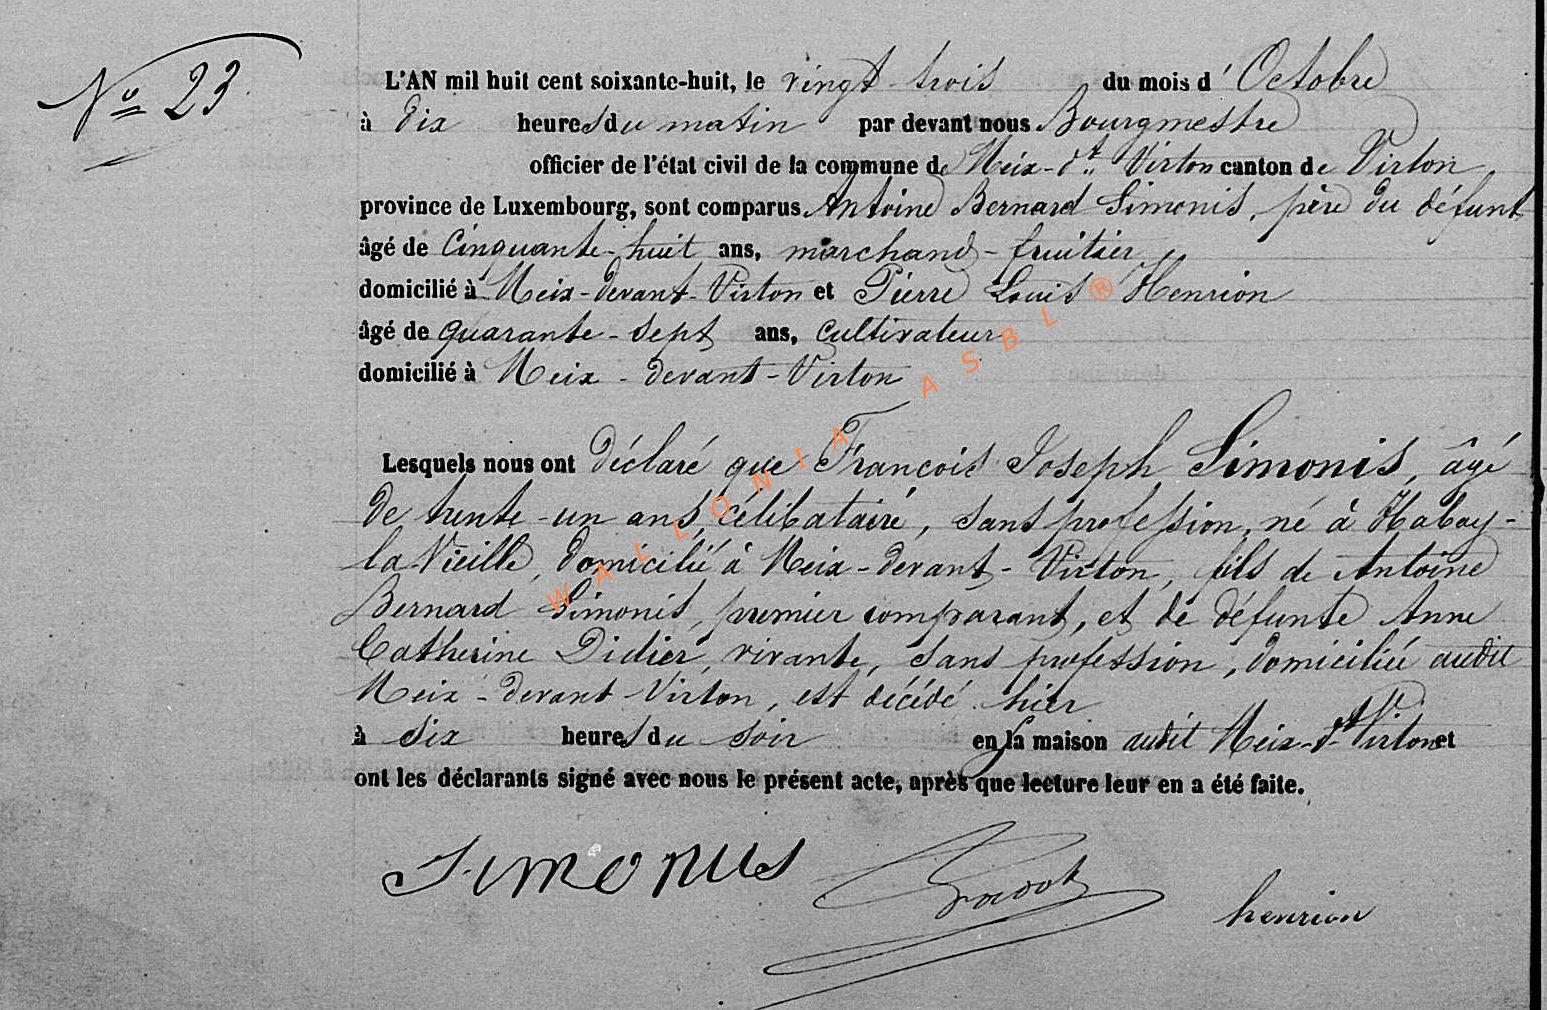 N° 23
L'AN mil huit cent soixante-huit, le vingt-trois du mois d'Octobre
à dix heures du matin par devant nous Bourgmestre
officier de l'état civil de la commune de Meix-dt Virton canton de Virton
province de Luxembourg, sont comparus Antoine Bernard Simonis, père du défunt
âgé de cinquante-huit ans, marchand-fruitier,
domicilié à Meix-devant-Virton et Pierre Louis Henrion
âgé de quarante-sept ans, cultivateur
domicilié à Meix-devant-Virton
Lesquels nous ont déclaré que François Joseph Simonis, âgé
de trente-un ans, célibataire, sans profession, né à Habay-
la Vieille, domicilié à Meix-devant-Virton, fils de Antoine
Bernard Simonis, premier comparant, et de défunte Anne
Catherine Didier, vivante, sans profession, domiciliée audit
Meix-devant Virton, est décédé hier
à six heures du soir en la maison audit Meix-dt Virton et
ont les déclarants signé avec nous le présent acte, après que lecture leur en a été faite.
Simonis
henrion
WALLONIA ASBL ®